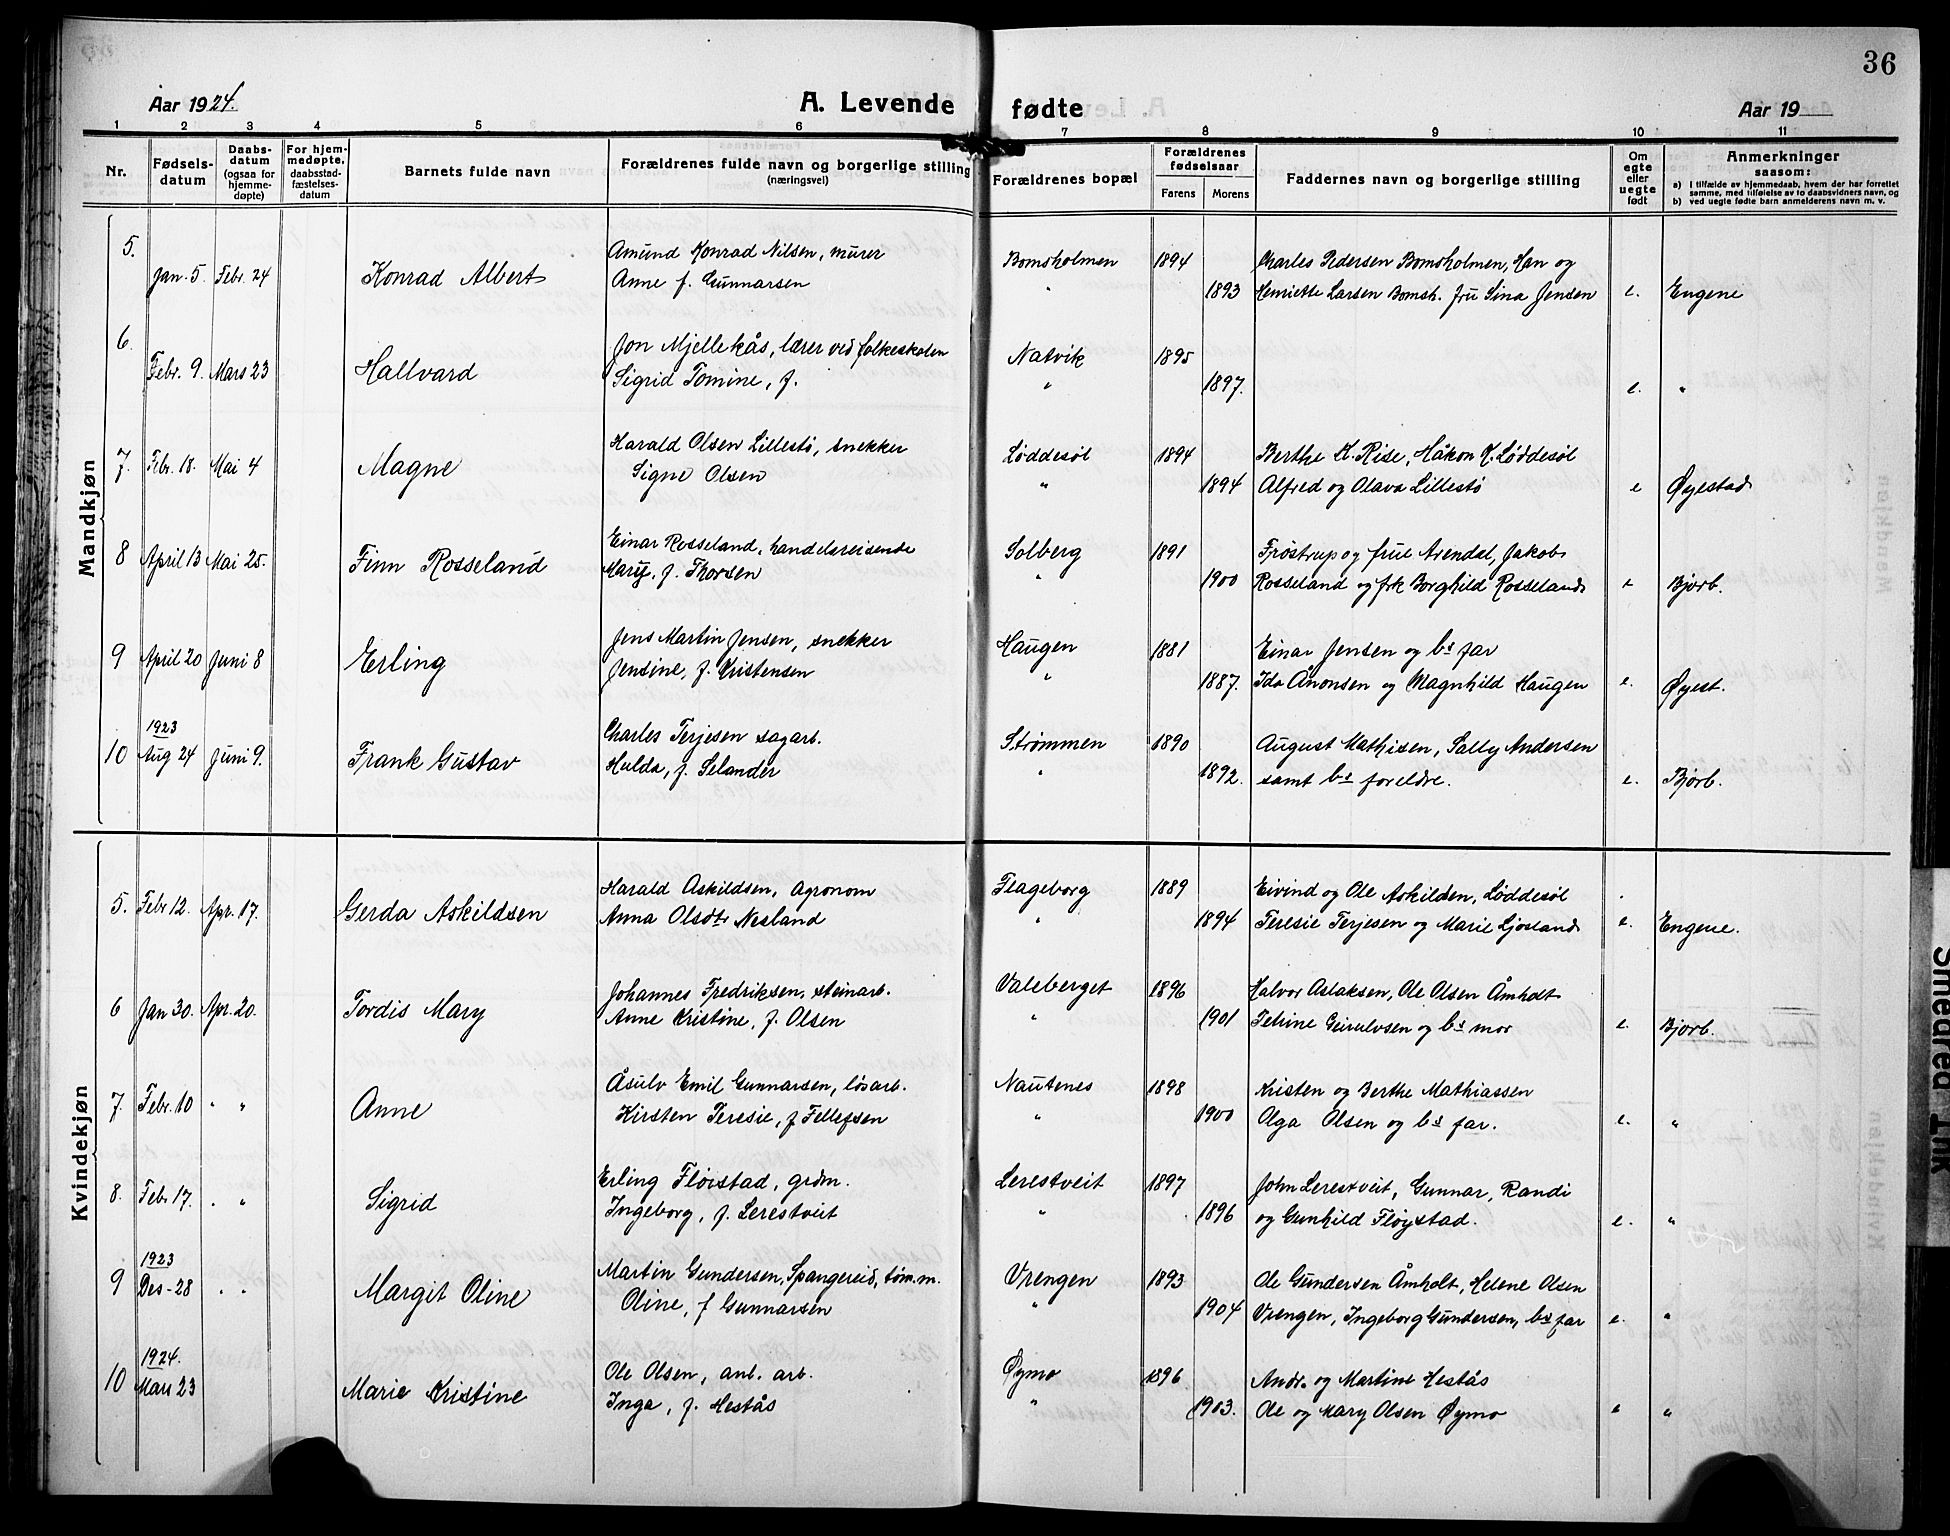 36
Aar 1924.
A. Levende fødte
Aar 19
1 2 3 4 5 6 7 8 9 10 11
Nr.
Fødsels-
datum
Daabs-
datum
(ogsaa for
hjemme-
døpte)
For hjem-
medøpte,
daabsstad-
fæstelses-
datum
Barnets fulde navn
Forældrenes fulde navn og borgerlige stilling
(næringsvei)
Forældrenes bopæl
Forældrenes
fødselsaar
Farens Morens
Faddernes navn og borgerlige stilling
Om
egte
eller
uegte
født
Anmerkninger
saasom:
a) i tilfælde av hjemmedaab, hvem der har forrettet
samme, med tilføielse av to daabsvidners navn, og
b) ved uegte fødte barn anmelderens navn m. v.
Mandkjøn
5. Amund Konrad Nilsen, murer Bomsholmen 1894 Charles Pedersen Bomsholmen, Han og
Jan. 5 Febr. 24 Konrad Albert Anne f. Gunnarsen " 1893 Henriette Larsen Bomsh. fru Sina Jensen e. Engene
6. Jon Mjellekås, lærer ved folkeskolen Natvik 1895
Febr. 9. Mars 23 Hallvard Sigrid Tomine, f. " 1897. e. "
7. Harald Olsen Lillestø, snekker Løddesøl 1894 Berthe K. Rise, Håkon K. Løddesøl
Febr. 18. Mai 4 Magne Signe Olsen " 1894 Alfred og Olava Lillestø e Øyestad
8 Einar Rosseland, handelsreisende Solberg 1891 Frøstrup og frue Arendal, Jakob
April 13 Mai 25. Finn Rosseland Mary, f. Thorsen " 1900 Rosseland og frk Borghild Rosseland e Bjorb.
9 Jens Martin Jensen, snekker Haugen 1881 Einar Jensen og bs far
April 20 Juni 8 Erling Jensine, f. Kristensen " 1887. Ida Ånonsen og Magnhild Haugen e. Øyest.
1923
10 Charles Terjesen sagarb. Strømmen 1890 August Mathisen, Sally Andersen
Aug 24 Juni 9. Frank Gustav Hulda, f. Selander " 1892. samt bs foreldre. e. Bjorb.
Kvindekjøn
5. Harald Askildsen, Agronom Flageborg 1889 Eivind og Ole Askildsen, Løddesøl
Febr 12. Apr. 17. Gerda Askildsen Anna Olsdtr Nesland " 1894 Teresie Terjesen og Marie Ljosland e. Engene.
6 Johannes Fredriksen, steinarb. Valeberget 1896 Halvor Aslaksen, Ole Olsen Åmholt
Jan 30. Apr. 20. Tordis Mary Anne Kristine, f. Olsen " 1901 Petrine Geirulvsen og bs mor e. Bjorb.
7. Åsulv Emil Gunnarsen, løsarb. Nautenes 1898 Kristen og Berthe Mathiassen
Febr. 10 " " Anne Kirsten Teresie, f Tellefsen " 1900 Olga Olsen og bs far. e. "
8. Erling Fløistad, grdm. Lerestveit 1897 John Lerestveit, Gunnar, Randi
Febr 17. " " Sigrid Ingeborg, f. Lerestveit " 1896 og Gunhild Fløystad. e. "
1923
9 Martin Gundersen, Spangereid, tøm.m. Vrengen 1893 Ole Gundersen Åmholt, Helene Olsen
Des - 28 " " Margit Oline Oline, f Gunnarsen " 1904 Vrengen, Ingeborg Gundersen, bs far e. "
1924.
10 Ole Olsen, anl. arb. Øymo 1896 Andr. og Martine Hestås
Mars 23 Marie Kristine Inga, f. Hestås " 1903. Ole og Mary Olsen Øymo e "